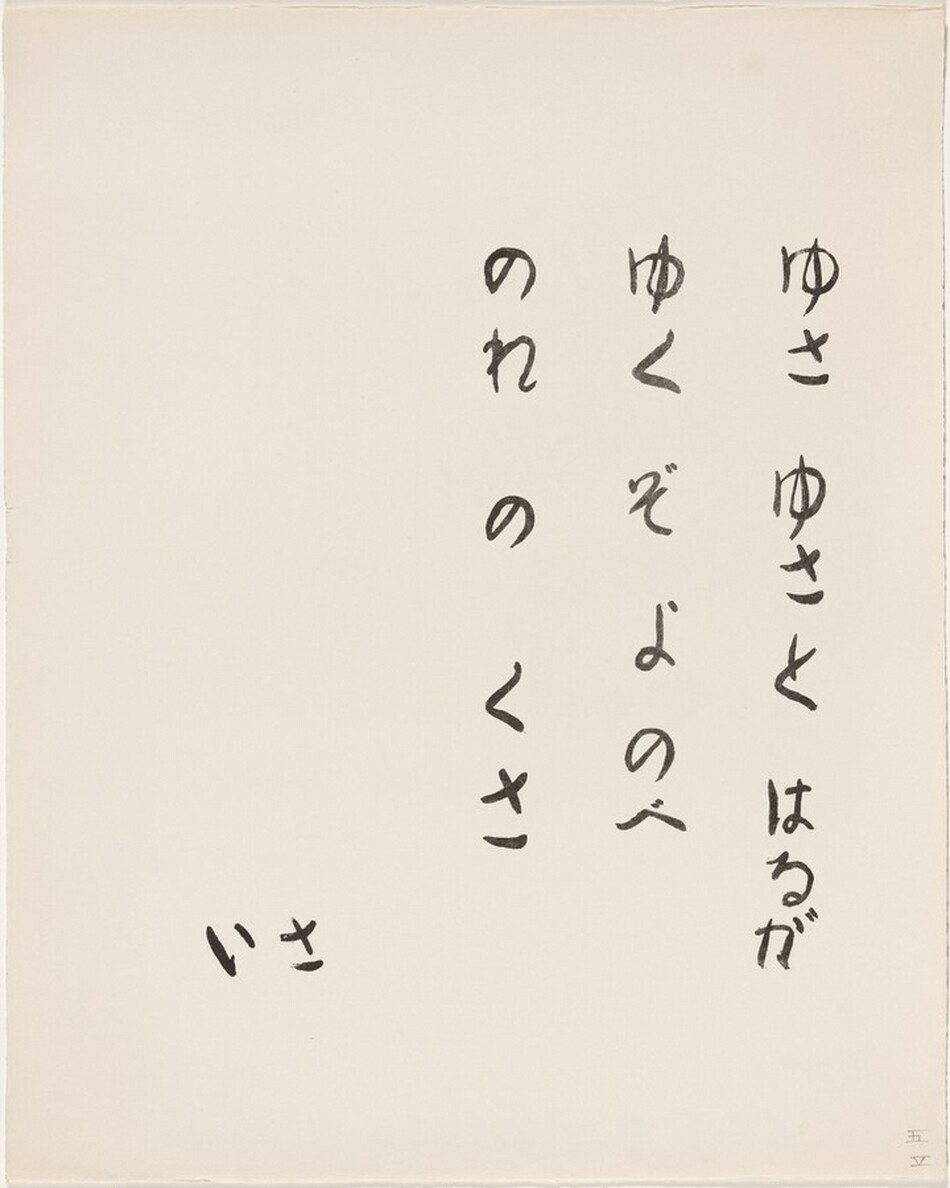 ゆさ ゆさと はるが
ゆく ぞ よ のべ
のれ の くさ
さい
五
V